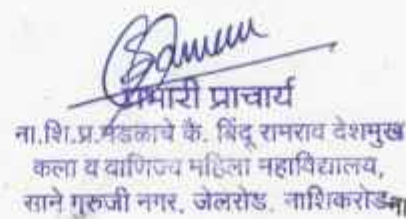 प्रभारी प्राचार्य
ना.शि.प्र.मंडळाचे कै. बिंदू रामराव देशमुख
कला व वाणिज्य महिला महाविद्यालय,
साने गुरुजी नगर, जेलरोड, नाशिकरोड